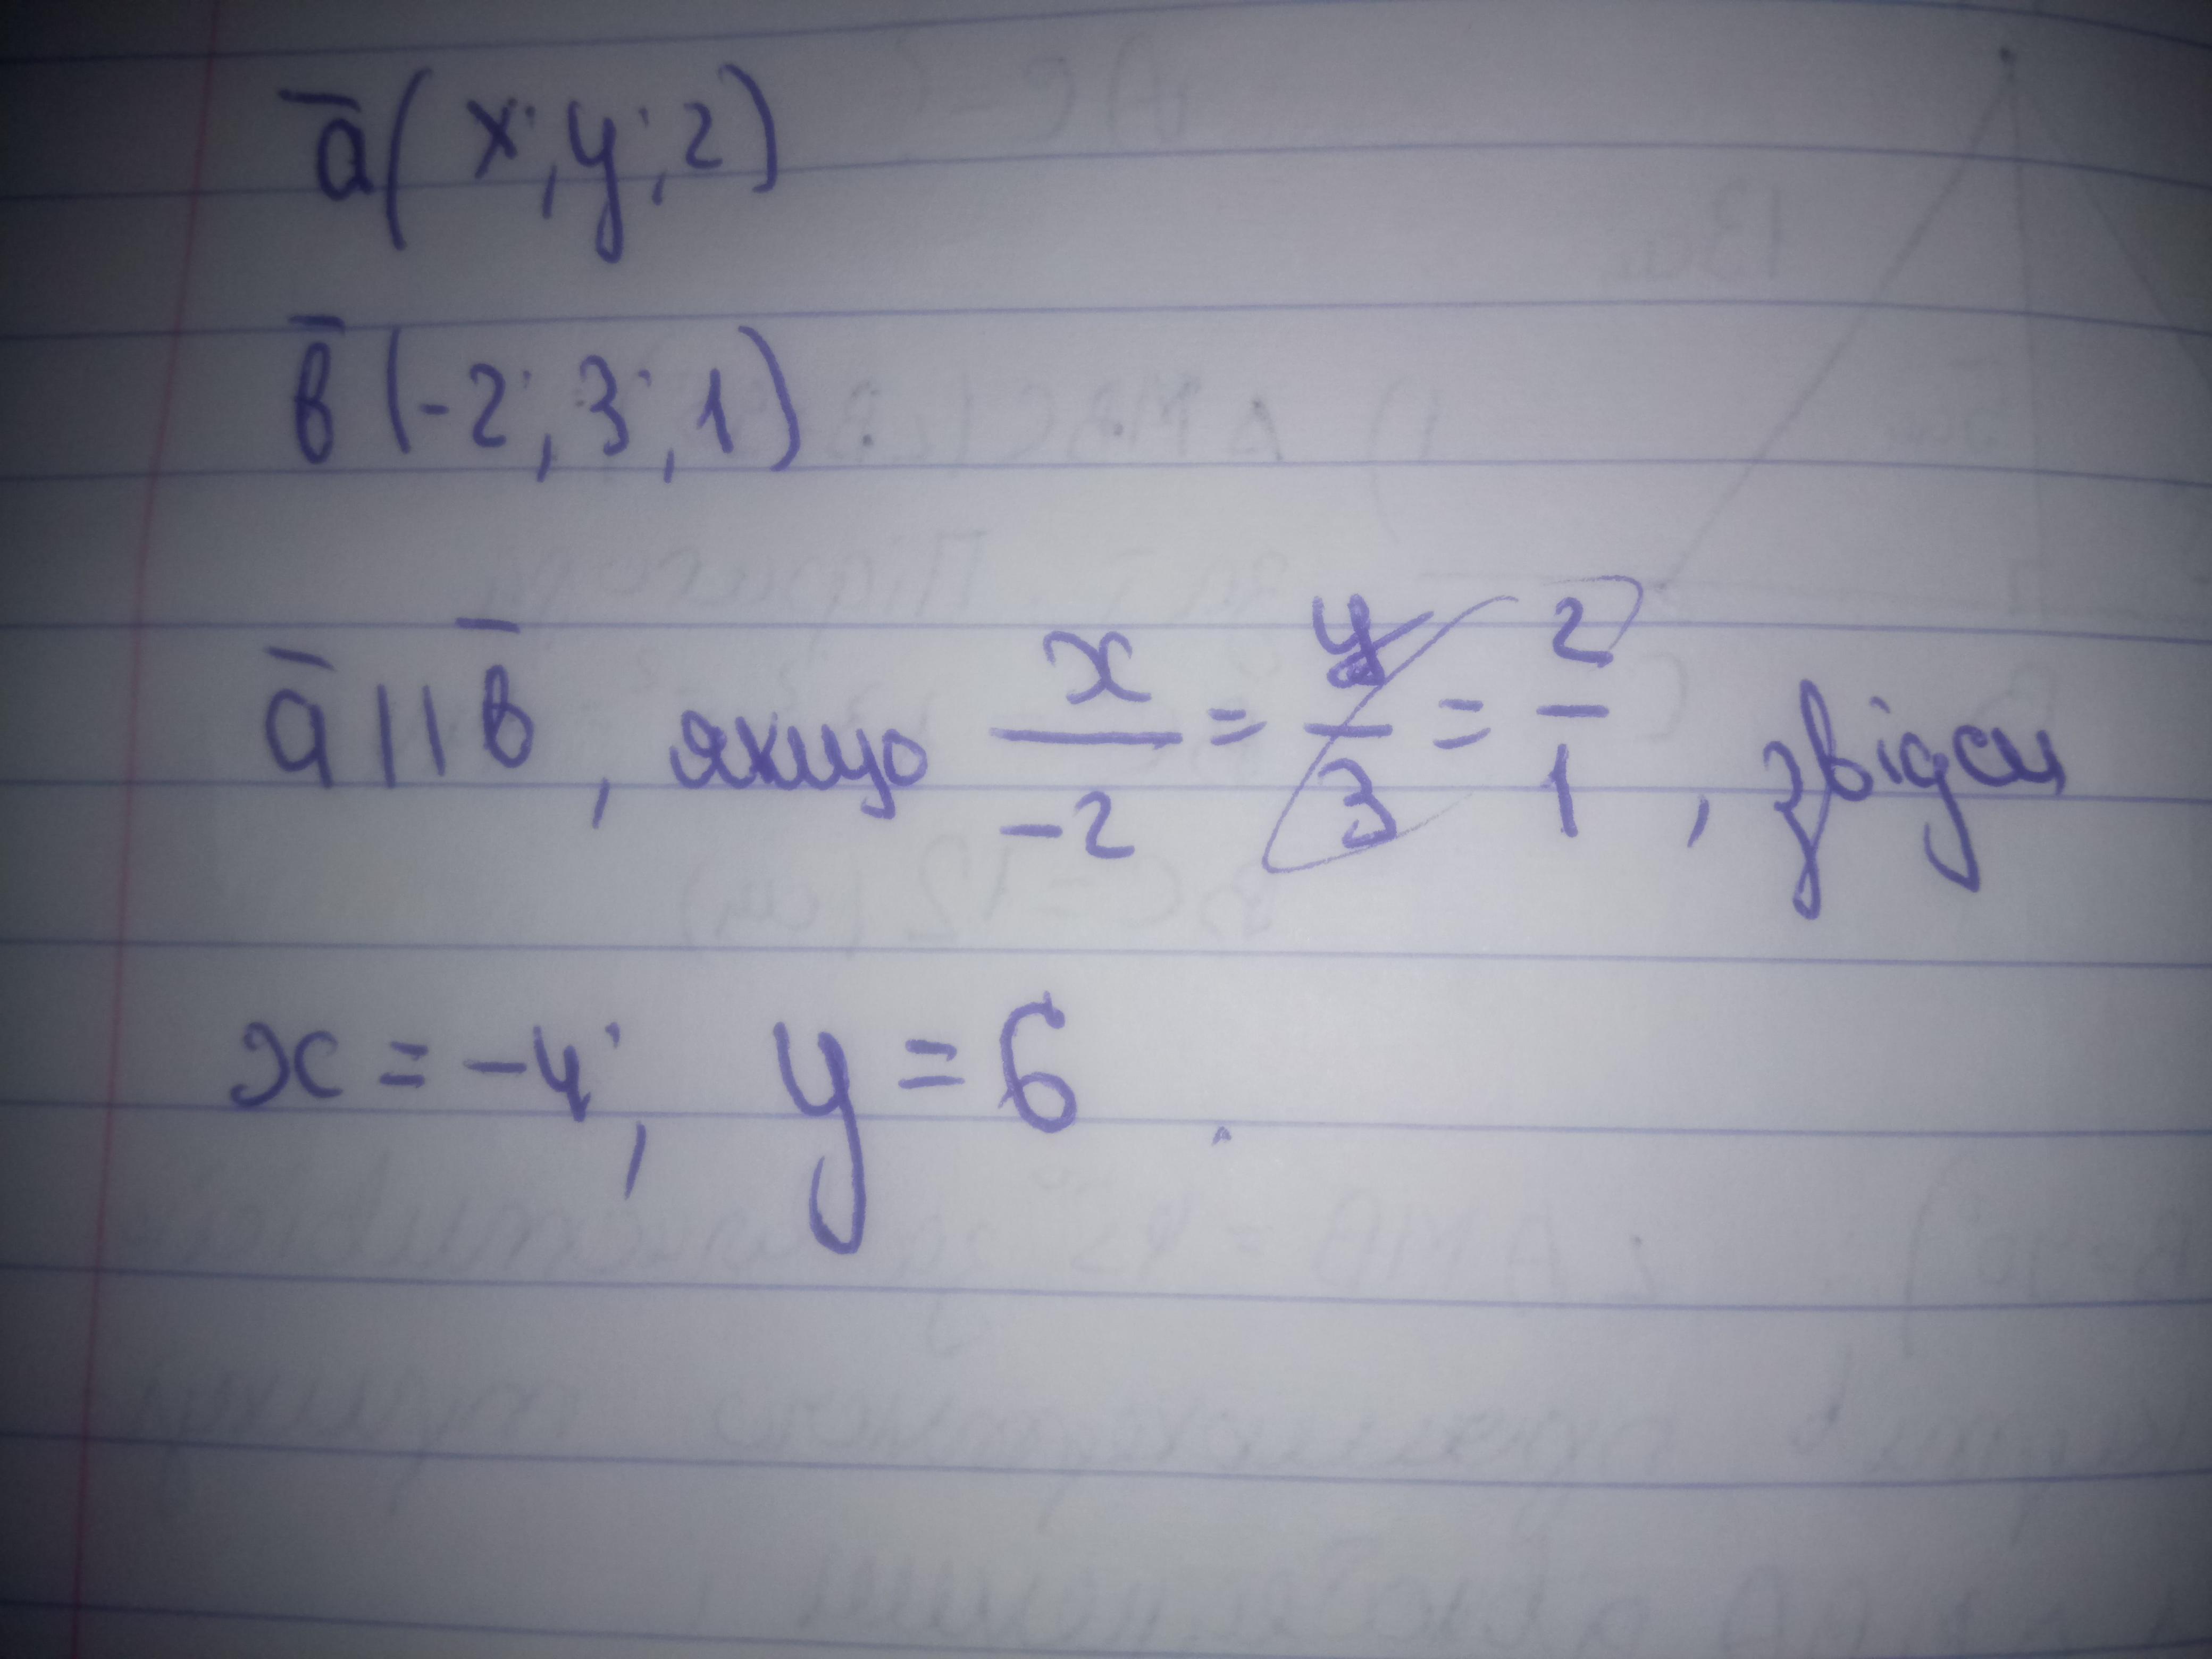 a̅(x; y; 2)
в̅(-2; 3; 1)
a̅ || в̅, якщо x/-2 = y/3 = 2/1, звідси
x = -4; y = 6.